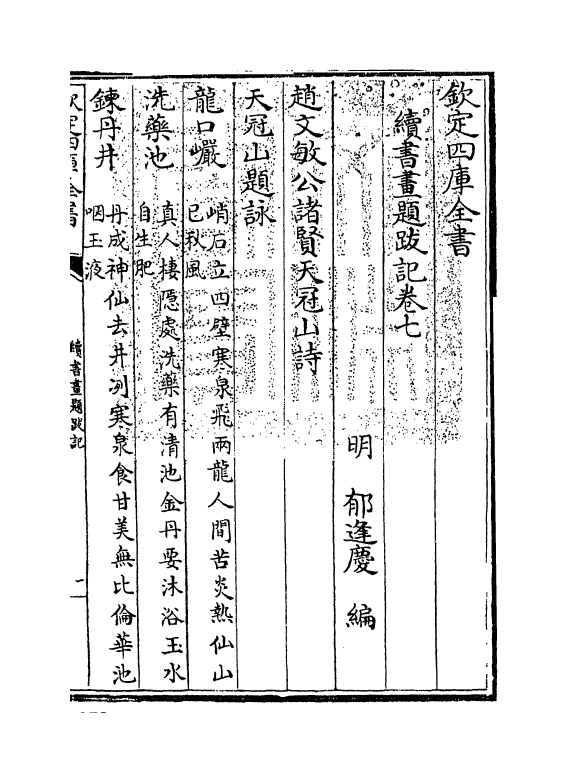 欽定四庫全書
續書畫題跋記卷七
明 郁逢慶 編
趙文敏公諸賢天冠山詩
天冠山題詠
龍口巖 峭石立四壁寒泉飛兩龍人間苦炎熱仙山
已秋風
洗藥池 真人棲隱處洗藥有清池金丹要沐浴玉水
自生肥
鍊丹井 丹成神仙去井冽寒泉食甘美無比倫華池
咽玉液
欽定四庫全書
續書畫題跋記
一